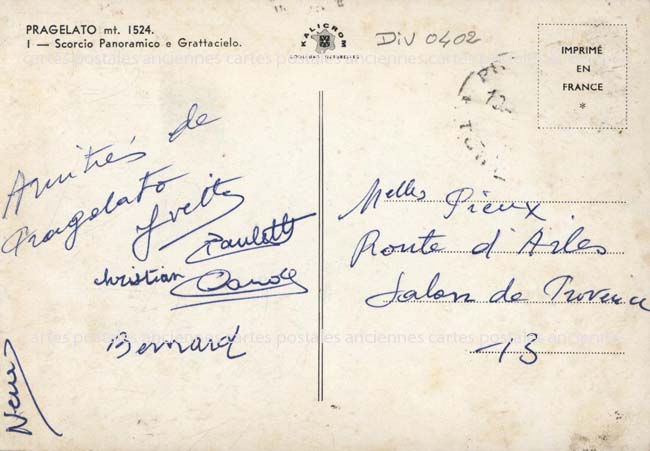 PRAGELATO mt. 1524.
I — Scorcio Panoramico e Grattacielo.
KALICROM
DIV 0402
IMPRIMÉ
EN
FRANCE
*
cartes postales anciennes cartes postales anciennes cartes postales anciennes
Amitiés de
Pragelato
Yvette
Paulette
Christian
Bernard
Melles Pieux
Route d'Arles
Salon de Provence
13
cartes postales anciennes cartes postales anciennes cartes postales anciennes